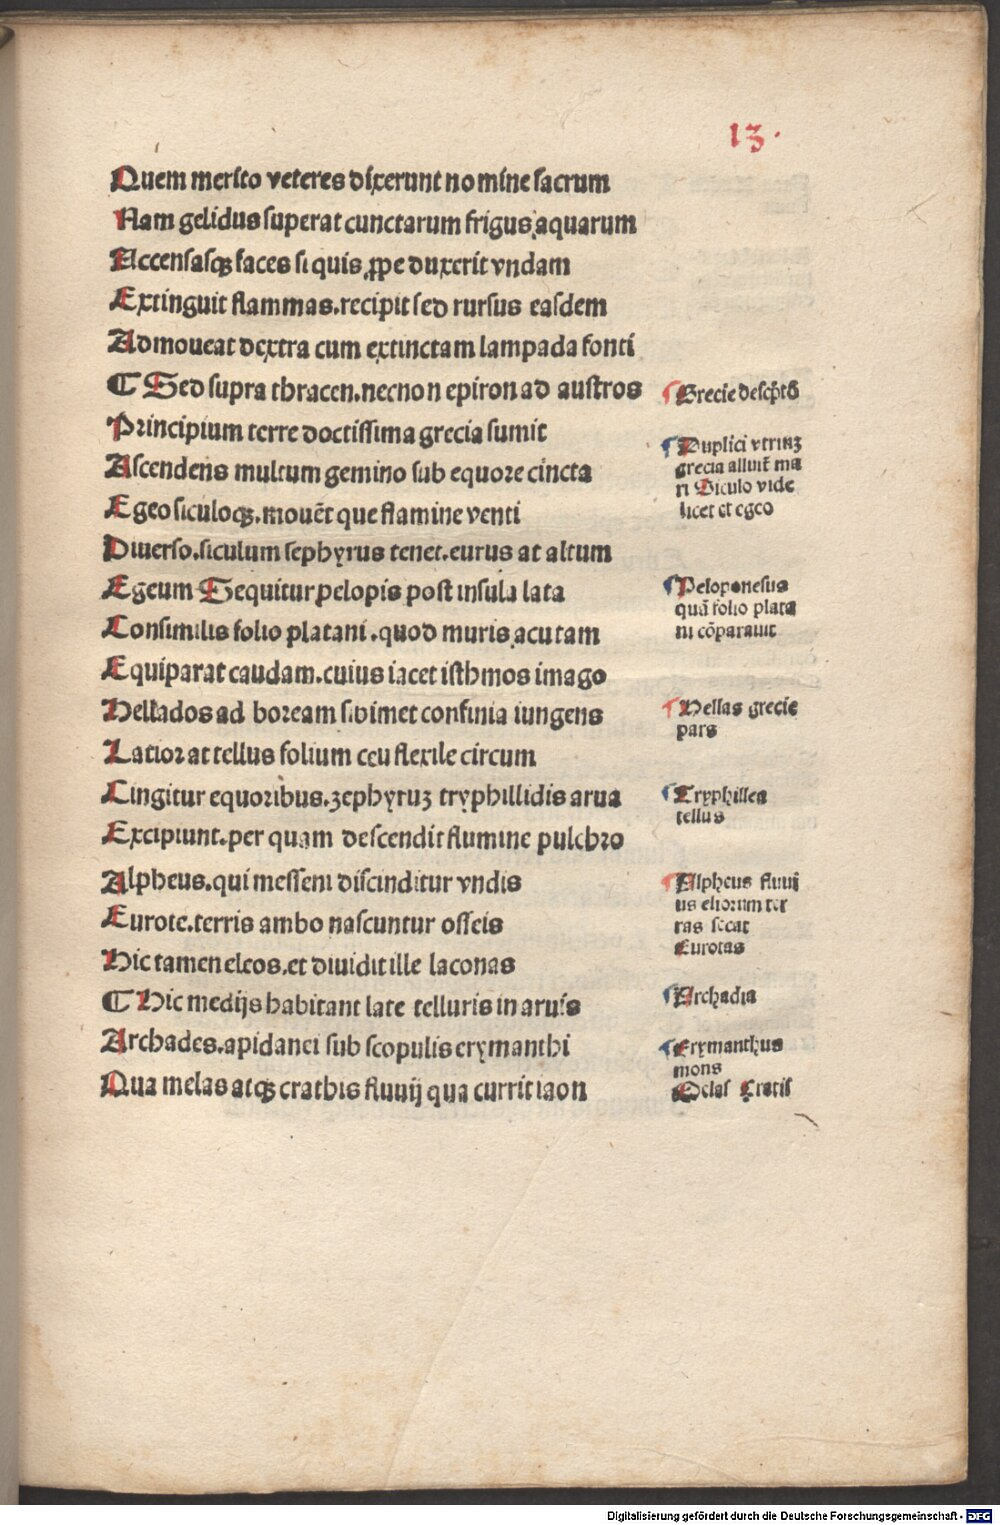 13.
Quem merito veteres dixerunt nomine sacrum
Nam gelidus superat cunctarum frigus aquarum
Accensasqꝫ faces si quis ꝓpe duxerit vndam
Extinguit flammas.recipit sed rursus easdem
Admoueat dextra cum extinctam lampada fonti
¶ Sed supra thracen.necnon epiron ad austros
Principium terre doctissima grecia sumit
Ascendens multum gemino sub equore cincta
Egeo siculoqꝫ.mouẽt que flamine venti
Diuerso.siculum sephyrus tenet.eurus at altum
Egeum Sequitur pelopis post insula lata
Consimilis folio platani.quod muris acutam
Equiparat caudam.cuius iacet isthmos imago
Hellados ad boream sibimet confinia iungens
Latior at tellus folium ceu flexile circum
Cingitur equoribus.zephyruꝫ tryphillidis arua
Excipiunt.per quam descendit flumine pulchro
Alpheus.qui messeni discinditur vndis
Eurote.terris ambo nascuntur osseis
Hic tamen eleos.et diuidit ille laconas
¶ Hic medijs habitant late telluris in aruis
Archades.apidanei sub scopulis erymanthi
Qua melas atqꝫ crathis fluuij qua currit iaon
Grecie
Duplici vtrinꝫ
grecia alluit̃ ma
ri Siculo vide
licet et egeo
Peloponesus
quã folio plata
ni cõparauit
Hellas grecie
pars
Tryphillea
tellus
Alpheus fluuij
us eliorum ter
ras secat
Eurotas
Archadia
Erymanthus
mons
Melas Cratis
Digitalisierung gefördert durch die Deutsche Forschungsgemeinschaft - DFG